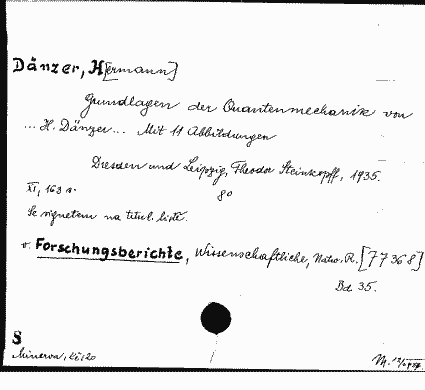 Dänzer, H[ermann]
Grundlagen der Quantenmechanik von
... H. Dänzer... Mit 11 Abbildungen
Dresden und Leipzig, Theodor Steinkopff, 1935.
XI, 163 s. 8o
Se signetem na titul. listě.
v. Forschungsberichte, Wissenschaftliche, Natw. R. [77368]
Bd. 35.
S
Minerva,
M.